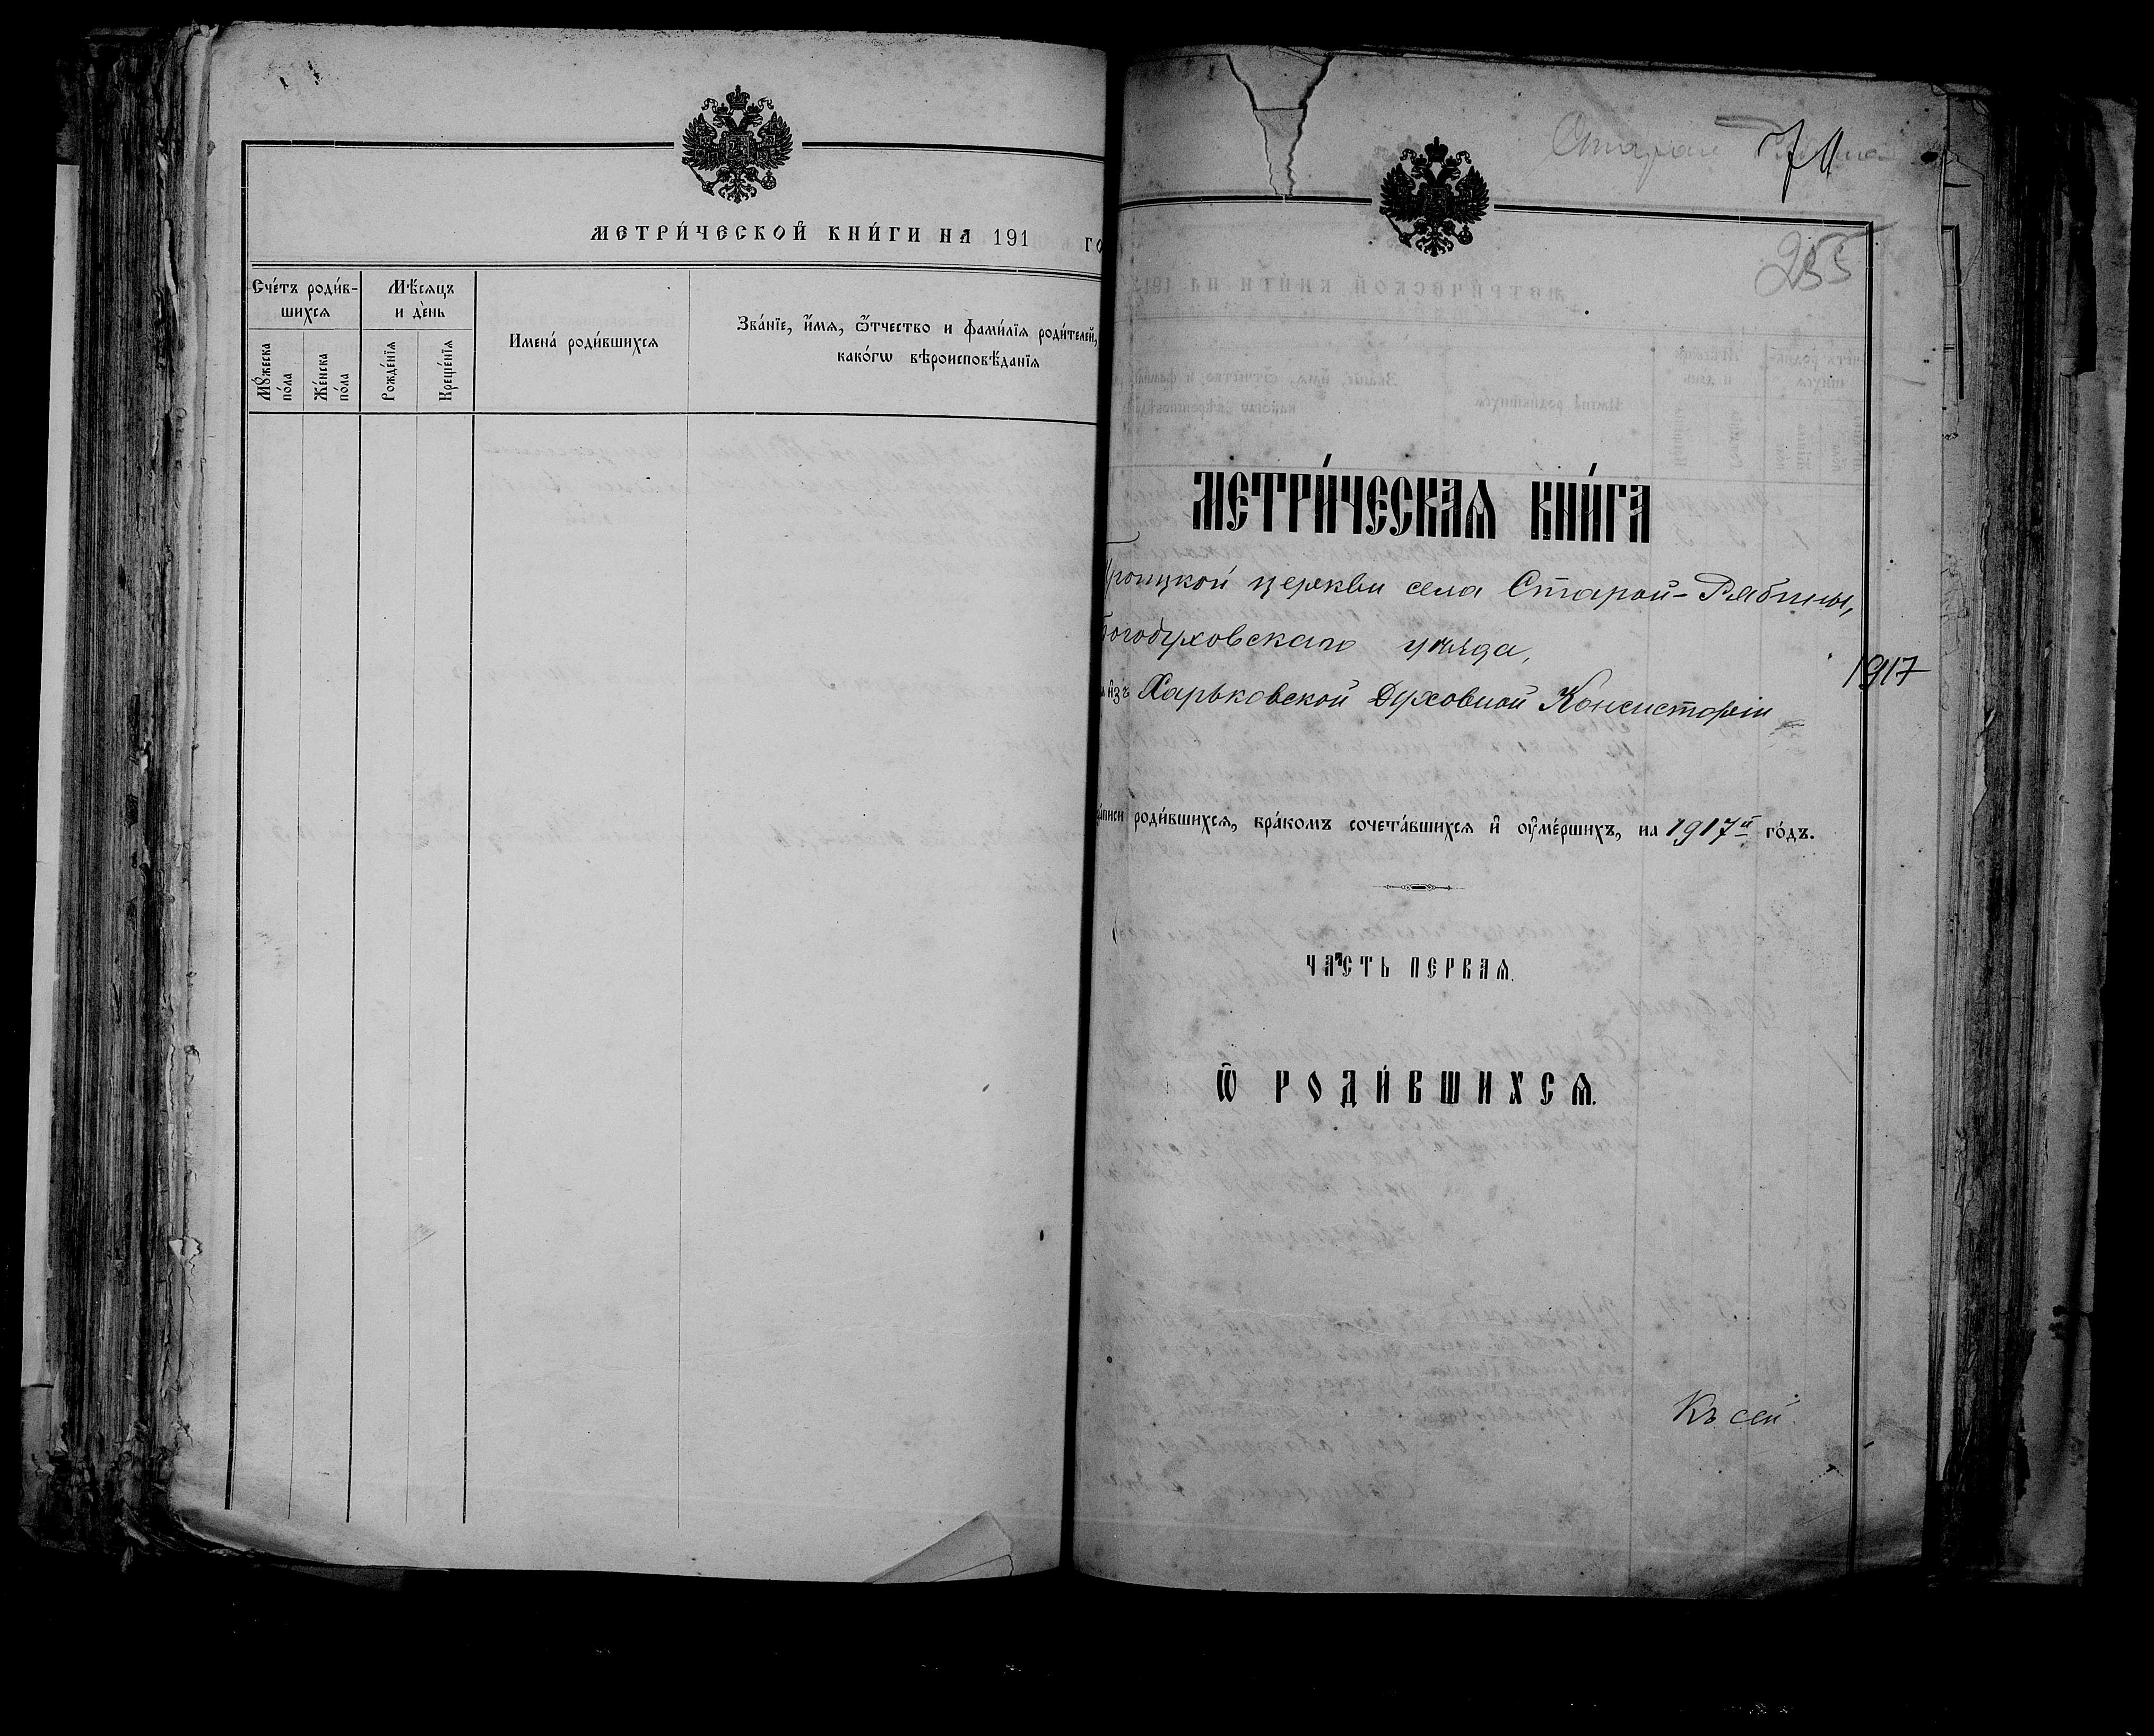 МЕТРИ́ЧЕСКОЙ КНИ́ГИ НА 191 го
Сче́тъ роди́в-
шихся
Мѣ́сяцъ
и де́нь
Имена́ роди́вшихся
Зва́нїе, и҆́мя, ѻ҆́тчество и фами́лїя роди́телей,
како́гѡ вѣроисповѣ́данїя
Мꙋ́жеска
по́ла
Же́нска
по́ла
Рожде́нїя
Креще́нїя
Старая
71
255
МЕТРИ́ЧЕСКАѦ КНИ́ГА
Троицкой церкви села Старой-Рябины,
Богодуховскаго уѣзда,
1917
и҆зъ Харьковской Духовной Консисторіи
за́писи роди́вшихся, бра́комъ сочета́вшихся и҆ оу҆ме́ршихъ, на 1917й го́дъ.
ЧА́СТЬ ПЕ́РВАѦ.
Ѽ РОДИ́ВШИХСѦ.
Къ сей